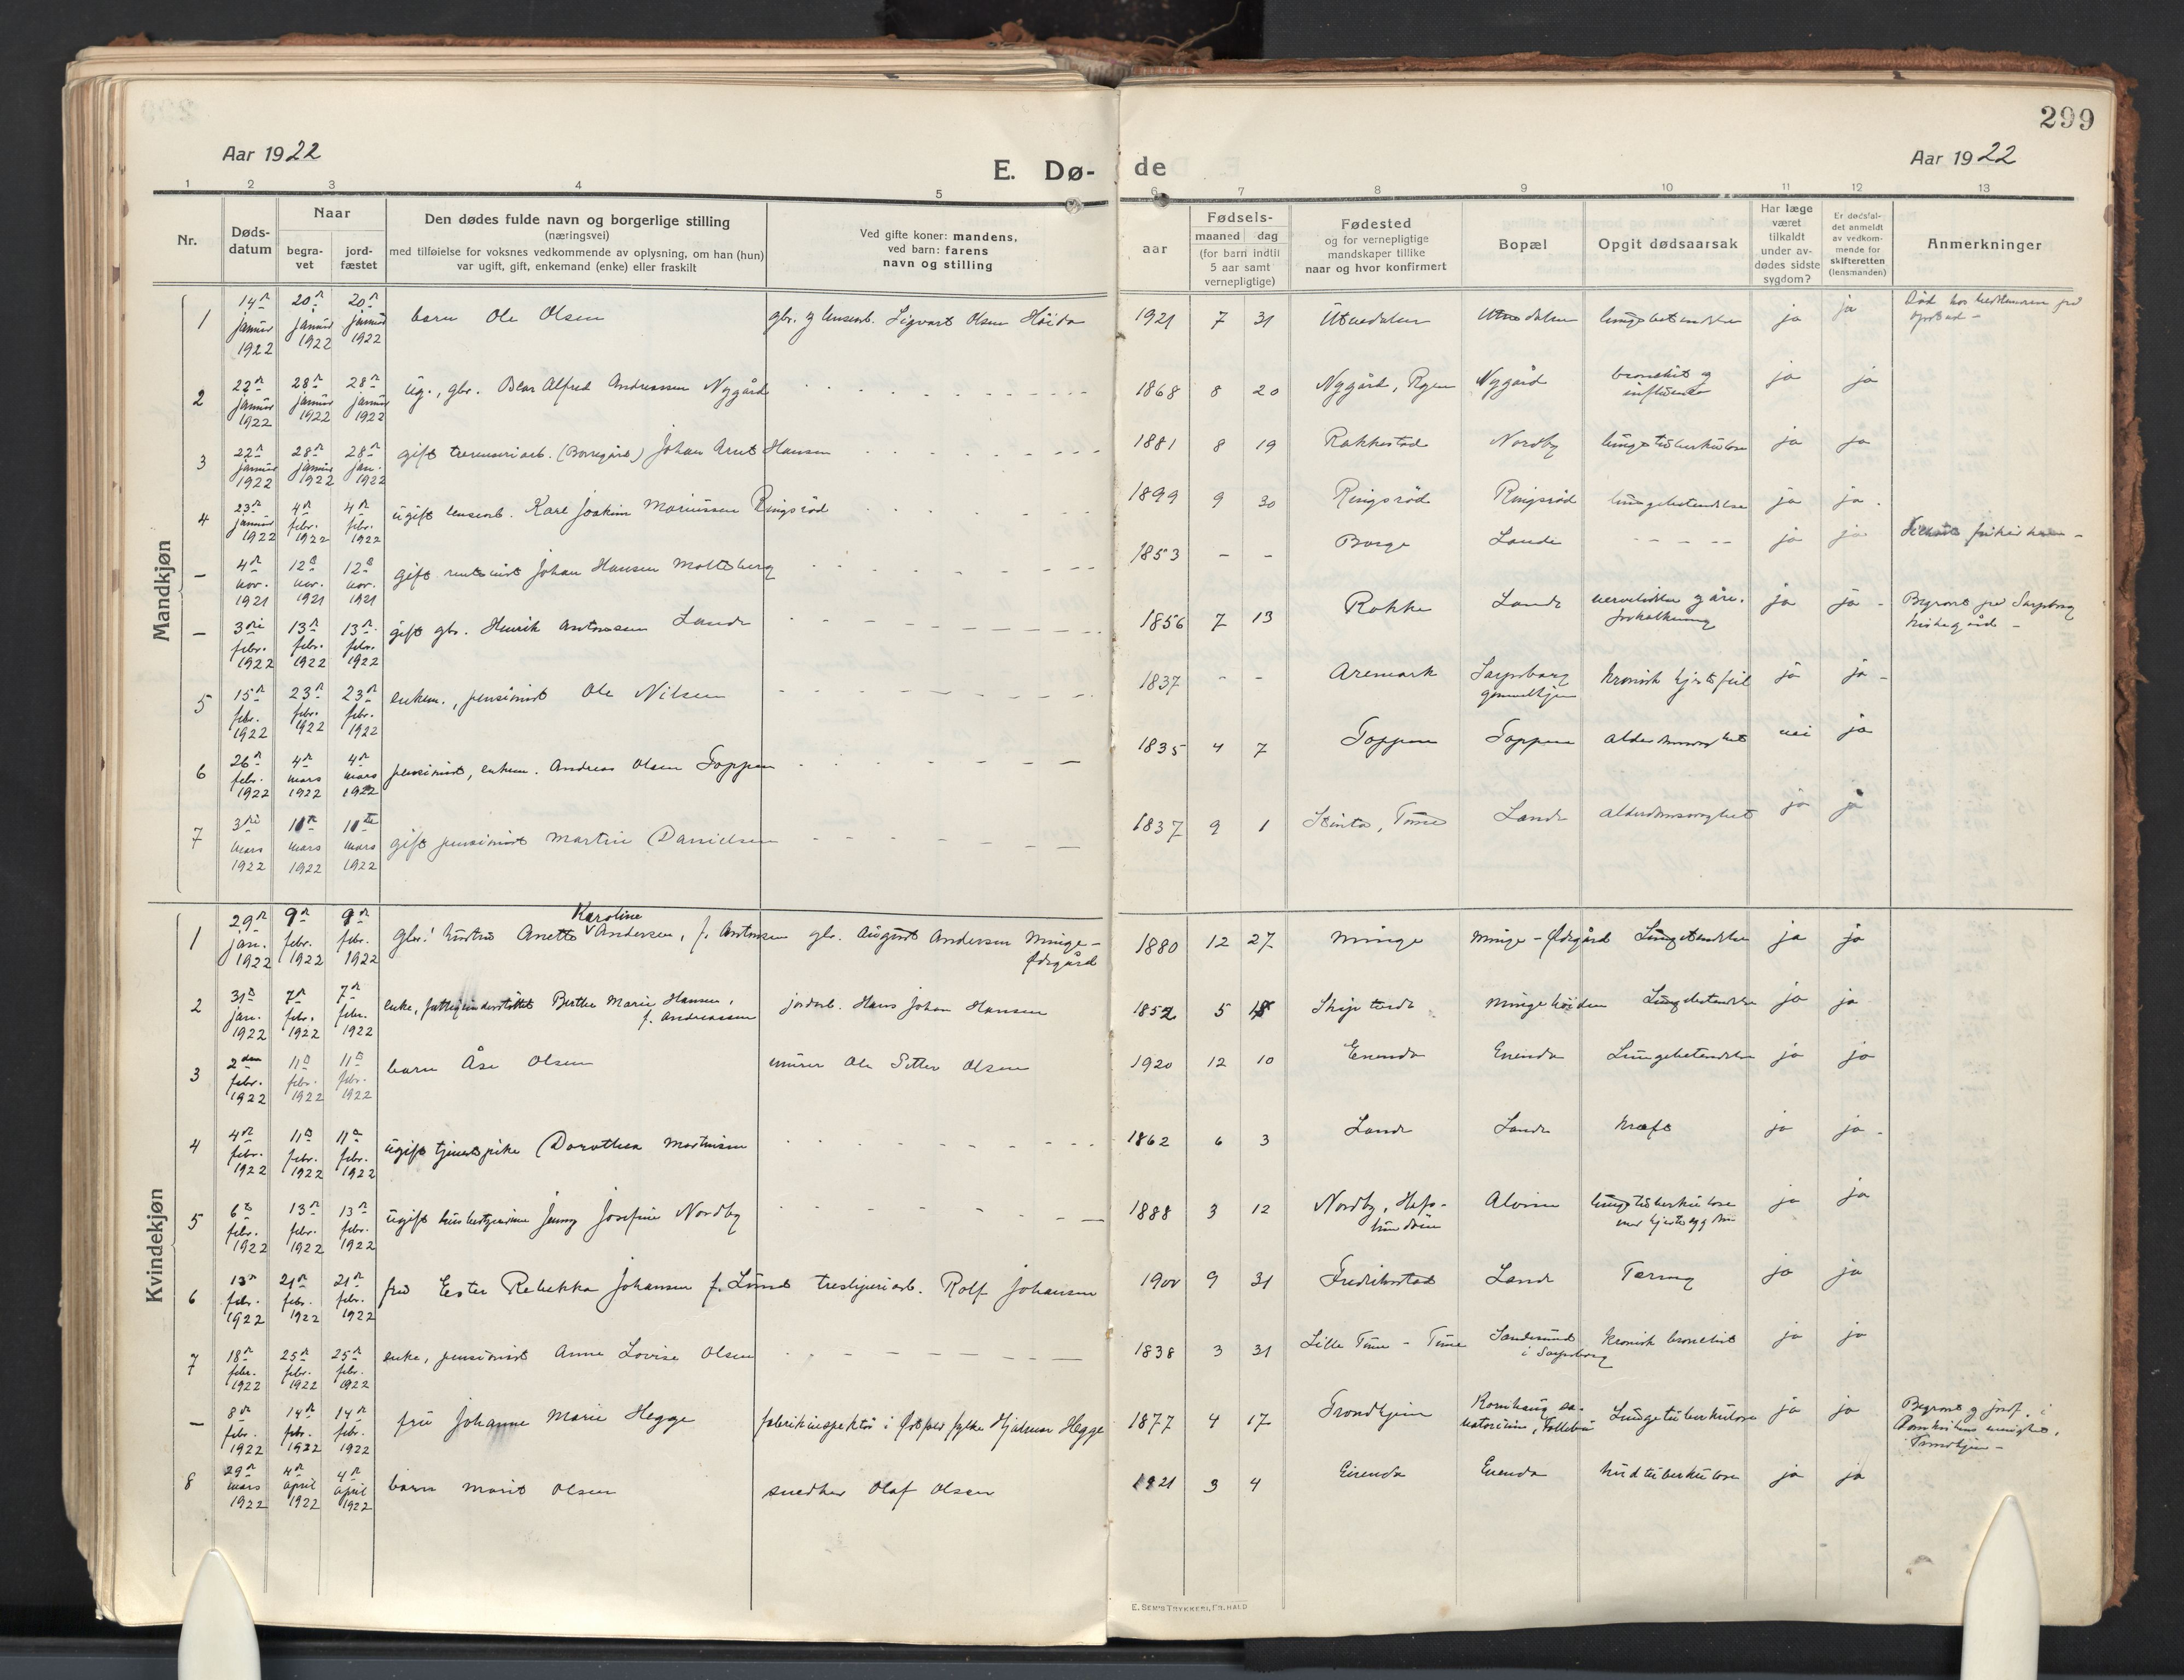 299
Aar 1922
E. Dø-
de
Aar 1922
1 2 3 4 5 6 7 8 9 10 11 12 13
Nr.
Døds-
datum
Naar
begra-
vet
jord-
fæstet
Den dødes fulde navn og borgerlige stilling
(næringsvei)
med tilføielse for voksnes vedkommende av oplysning, om han (hun)
var ugift, gift, enkemand (enke) eller fraskilt
Ved gifte koner: mandens,
ved barn: farens
navn og stilling
Fødsels-
aar
maaned dag
(for barn indtil
5 aar samt
vernepligtige)
Fødested
og for vernepligtige
mandskaper tillike
naar og hvor konfirmert
Bopæl
Opgit dødsaarsak
Har læge
været
tilkaldt
under av-
dødes sidste
sygdom?
Er dødsfal-
det anmeldt
av vedkom-
mende for
skifteretten
(lensmanden)
Anmerkninger
Mandkjøn
1 14de januar 1922 20de januar 1922 20de januar 1922 barn Ole Olsen gbr. og lensearb. Sigvart Olsen Høida 1921 7 31 Utnedalen Utnedalen lungebetendelse ja ja Død hos
2 22de januar 1922 28de januar 1922 28de januar 1922 ug., gbr. Alfred Andreassen Nygård 1868 8 20 Nygård, Rygen Nygård bronchit og influensa ja ja
3 22de januar 1922 28de januar 1922 28de jan. 1922 gift (Borregård) Johan Arnt Hansen 1881 8 19 Rakkestad Nordby lungetuberkulose ja ja
4 23de januar 1922 4de febr. 1922 4de febr. 1922 ugift lensearb. Karl Joakim Mariussen Ringsrød 1899 9 30 Ringsrød Ringsrød lungebetendelse ja ja
– 4de nov. 1921 12te nov. 1921 12te nov. 1921 gift Johan Hansen Moltebergg 1853 – – Borge Lande – – – – ja ja
– 3die febr. 1922 13de febr. 1922 13de febr. 1922 gift gbr. Henrik Antonsen Lande 1856 7 13 Rokke Lande nervelidelse og åre- forkalkning ja ja – Begravet på Sarpsborg kirkegård –
5 15de febr. 1922 23de febr. 1922 23de febr. 1922 enkem., pensionist Ole Nilsen 1837 – – Aremark Sarpsborg gamlehjem kronisk hjertefeil ja ja –
6 26de febr. 1922 4de mars 1922 4de mars 1922 pensionist, enkem. Andreas Olsen Toppen 1835 4 7 Toppen Toppen alderdomssvakhet nei ja
7 3die mars 1922 10de mars 1922 10de mars 1922 gift pensionist Martin Danielsen 1837 9 1 Tune Lande alderdomssvakhet ja ja
Kvindekjøn
1 29de jan. 1922 9de febr. 1922 9de febr. 1922 gbr. hustru Anette Karoline Andersen, f. Antonsen gbr. August Andersen Minge- Ødegård 1880 12 27 Minge Minge-Ødegård Lungebetendelse ja ja
2 31te jan. 1922 7de febr. 1922 7de febr. 1922 enke, fattigunderstøttet Berthe Marie Hansen, f. Andreassen jordarb. Hans Johan Hansen 1852 5 18 Skiptvedt Mingehøiden Lungebetendelse ja ja
3 2den febr. 1922 11te febr. 1922 11te febr. 1922 barn Åse Olsen murer Ole Petter Olsen 1920 12 10 Enenda Enenda Lungebetendelse ja ja
4 4de febr. 1922 11te febr. 1922 11te febr. 1922 ugift tjenestpike Dorothea Martinsen 1862 6 3 Lande Lande Kræft ja ja –
5 6te febr. 1922 13de febr. 1922 13de febr. 1922 ugift husbestyrerinne Jenny Josefine Nordby 1888 3 12 Nordby, Hafs- lundsøen Alvim lungetuberkulose ja ja
6 13de febr. 1922 21de febr. 1922 21de febr. 1922 fru Ester Rebekka Johansen f. Lund tresliperiarb. Rolf Johansen 1900 9 31 Fredrikstad Lande Tæring ja ja
7 18de febr. 1922 25de febr. 1922 25de febr. 1922 enke, pensionist Anne Lovise Olsen 1838 3 31 Lille Tune – Tune Sandesund i Sarpsborg Kronisk bronchit ja ja
– 8de febr. 1922 14de febr. 1922 14de febr. 1922 fru Johanne Marie Hegge fabrikinspektør i Østfold fylke Hjalmar Hegge 1877 4 17 Trondhjem Kornhaug sa- natorium, Follebu Lungetuberkulose ja ja Begravet og jordf. i Domkirkens menighet, Trondhjem –
8 29de mars 1922 4de april 1922 4de april 1922 barn Marit Olsen snedker Olaf Olsen 1921 3 4 Enenda Enenda hudtuberkulose ja ja
E. SEM'S TRYKKERI, FR.HALD